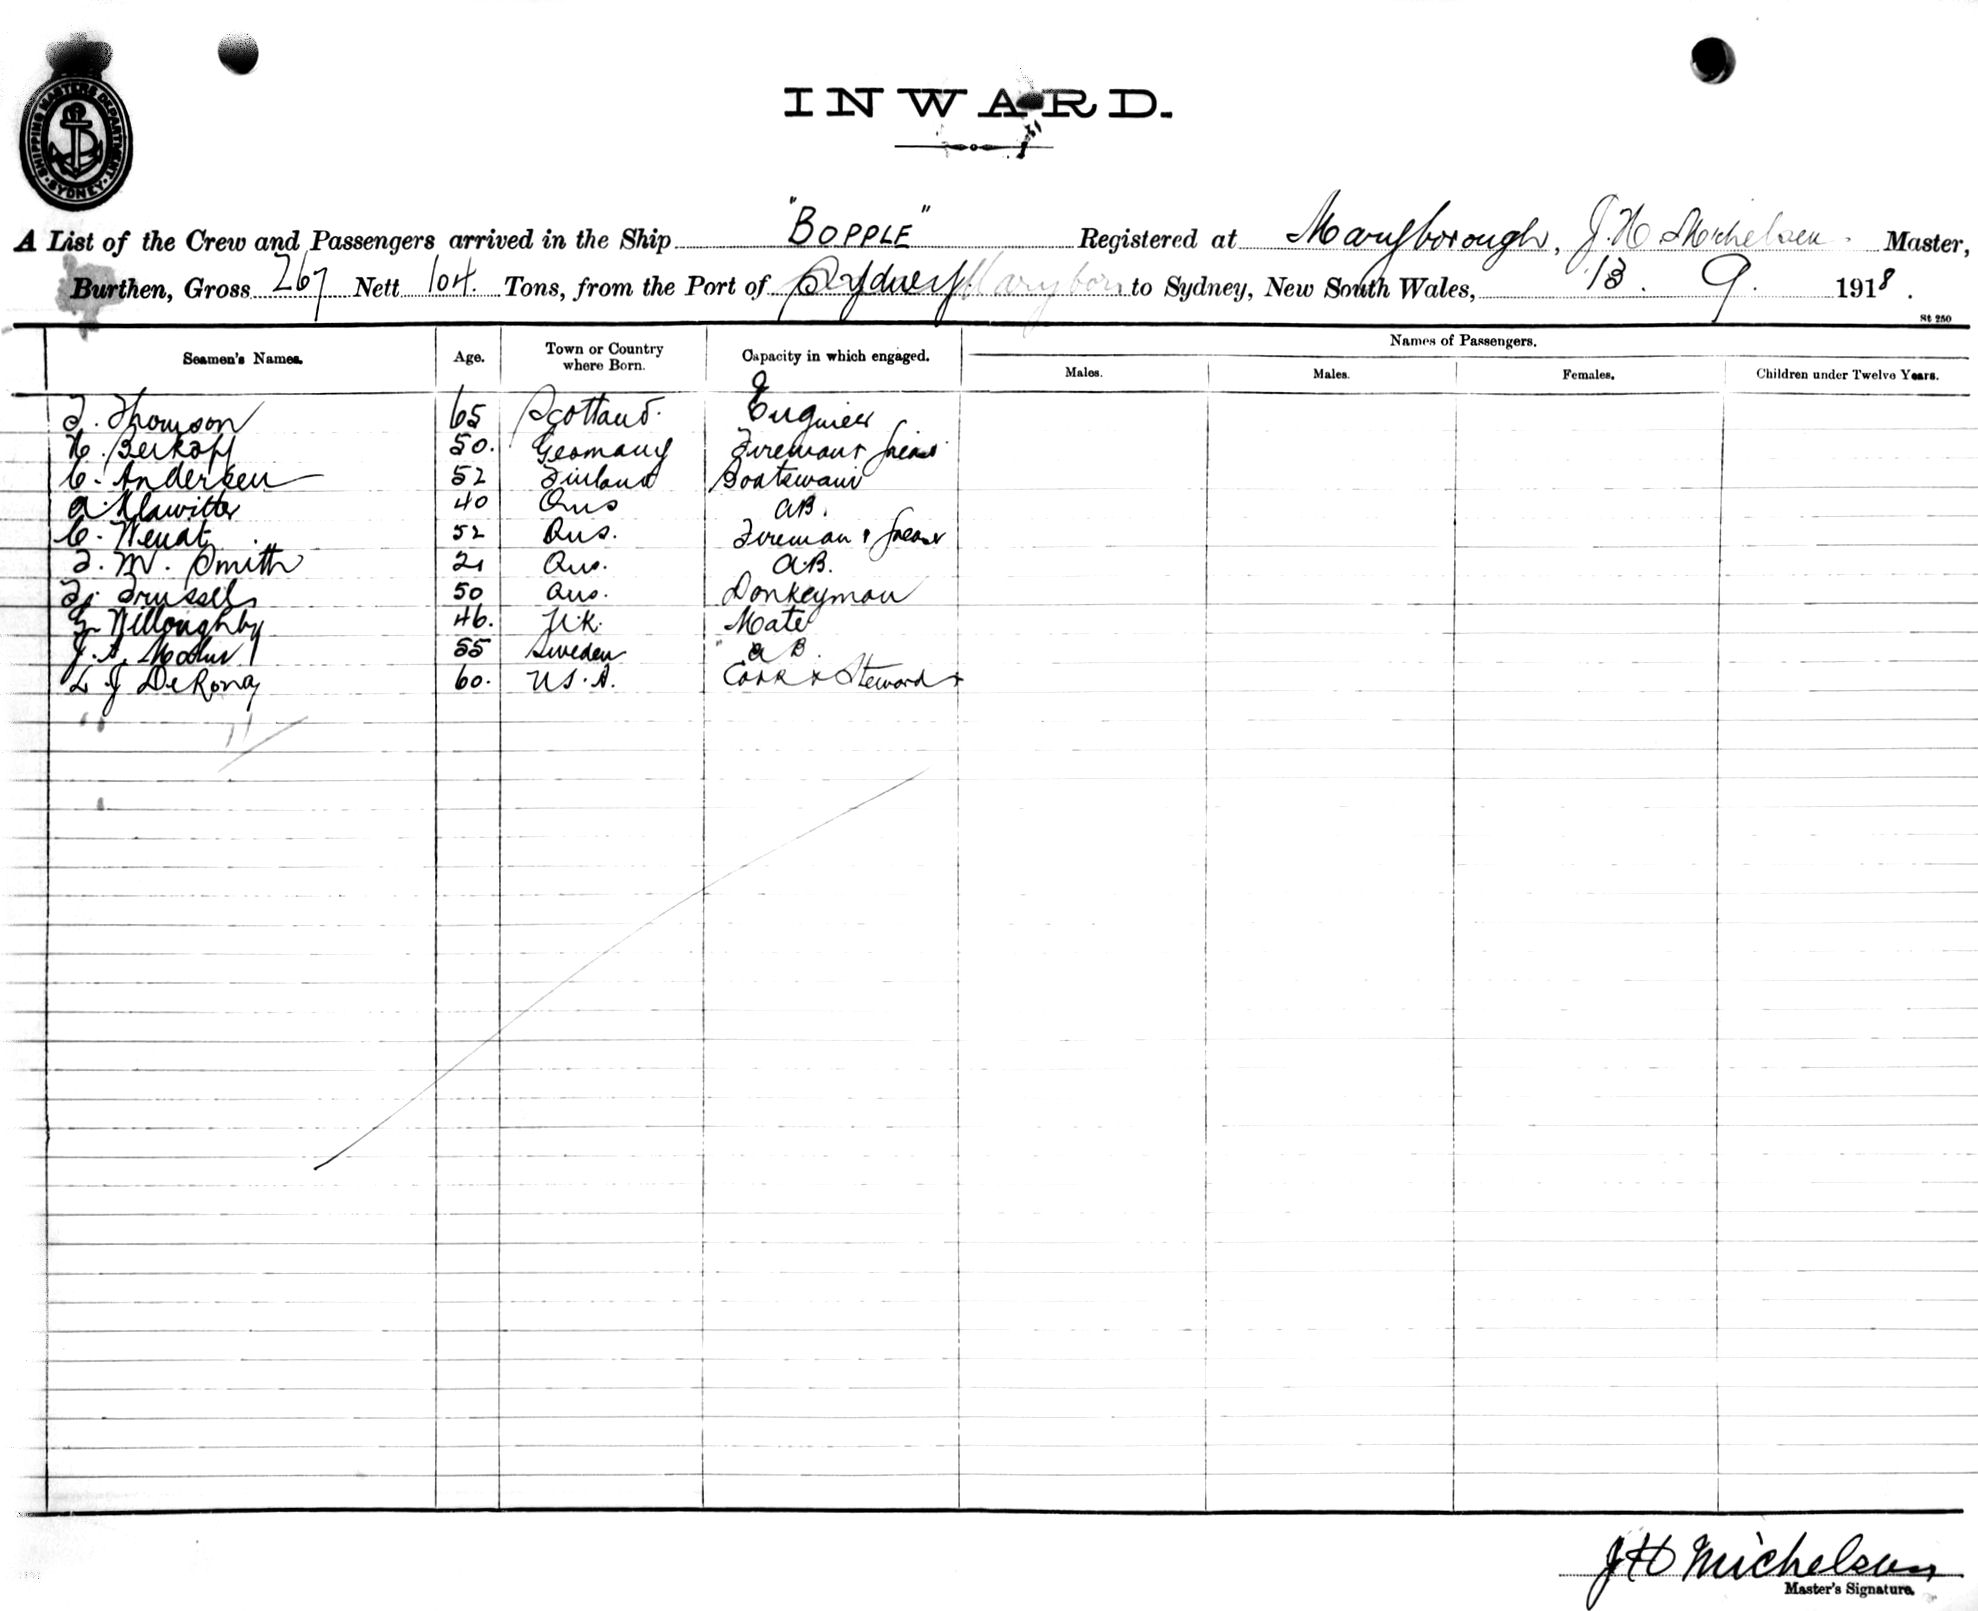 SHIPPING MASTERS DEPARTMENT SYDNEY
INWARD.
A List of the Crew and Passengers arrived in the Ship "BOPPLE" Registered at Maryborough, J. H. Michelsen. Master,
Burthen, Gross 267 Nett 104. Tons, from the Port of Sydney Marybor to Sydney, New South Wales, 13. 9. 1918.
St 250
Seamen's Names. Age. Town or Country where Born. Capacity in which engaged. Names of Passengers.
Males. Males. Females. Children under Twelve Years.
Thomson 65 Scotland. Engineer
H. Berkopf 50. Germany Fireman &
C. Andersen 52 Finland Boatswain
A Klawitter 40 Aus AB.
C. 52 Aus. Fireman &
F. M. Smith 21 Aus. A.B.
Trussell 50 Aus. Donkeyman
Willoughby 46. U.K. Mate
J. A. 55 Sweden AB.
L J DeRong 60. U.S.A. Cook & Steward
J H Michelsen
Master's Signature.